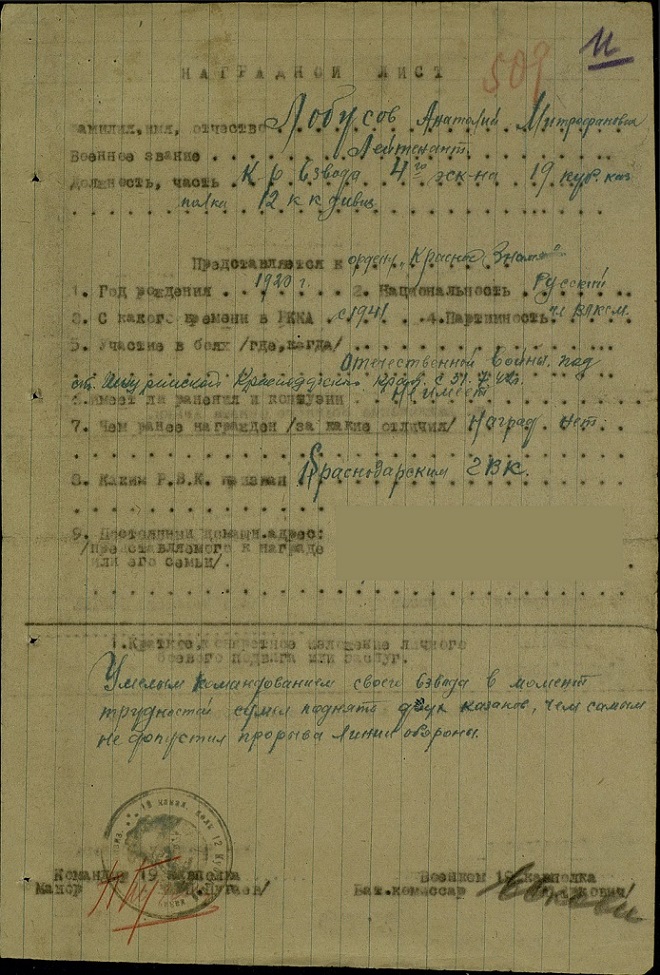 11
509
НАГРАДНОЙ ЛИСТ
Фамилия, имя, отчество Лобусов Анатолий Митрофанович
Военное звание Лейтенант.
Должность, часть К-р Взвода 4го эск-на 19 куб. каз
полка 12 к к дивиз
Представляется к ордену "Красное Знамя"
1. Год рождения 1920 г. 2. Национальность Русский
3. С какого времени в РККА с 1941 4. Партийность чл ВЛКСМ.
5. Участие в боях /где, когда/
Отечественной войны под
ст. Краснодарского края с 31.7.42г.
6. имеет ли ранения и контузии Не имеет
7. Чем ранее награжден /за какие отличия/ Наград нет.
8. Каким Р.В.К. призван Краснодарским ГВК.
9. Постоянный домашн.адрес:
/представляемого к награде
или его семьи/.
1. Краткое, конкретное изложение личного
боевого подвига или заслуг.
Умелым командованием своего взвода в момент
трудностей сумел поднять двух казаков, чем самым
не допустил прорыва линии обороны.
Командир 19 кавполка
Майор
Военком 19 кавполка
Бат.комиссар